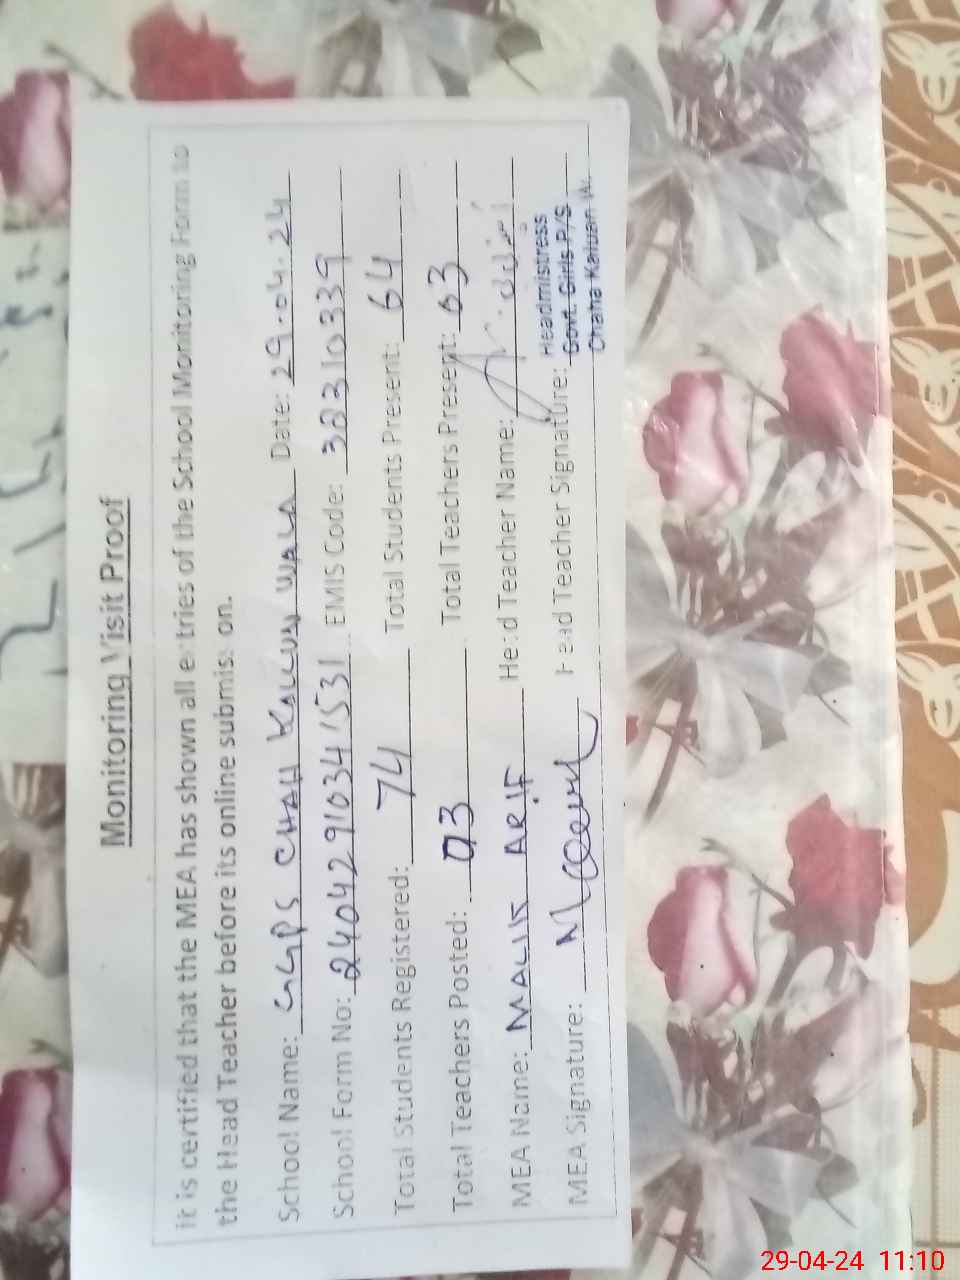 Monitoring Visit Proof
It is certified that the MEA has shown all entries of the School Monitoring Form to
the Head Teacher before its online submission.
School Name: GGPS CHAH KALLUN WALA Date: 29.04.24
School Form No: 240429103415531 EMIS Code: 38310339
Total Students Registered: 74 Total Students Present: 64
Total Teachers Posted: 03 Total Teachers Present: 03
MEA Name: MALIK ARIF Head Teacher Name:
MEA Signature: Head Teacher Signature:
Headmistress
Govt. Girls P/S
Chaha Kaluan W.
29-04-24 11:10